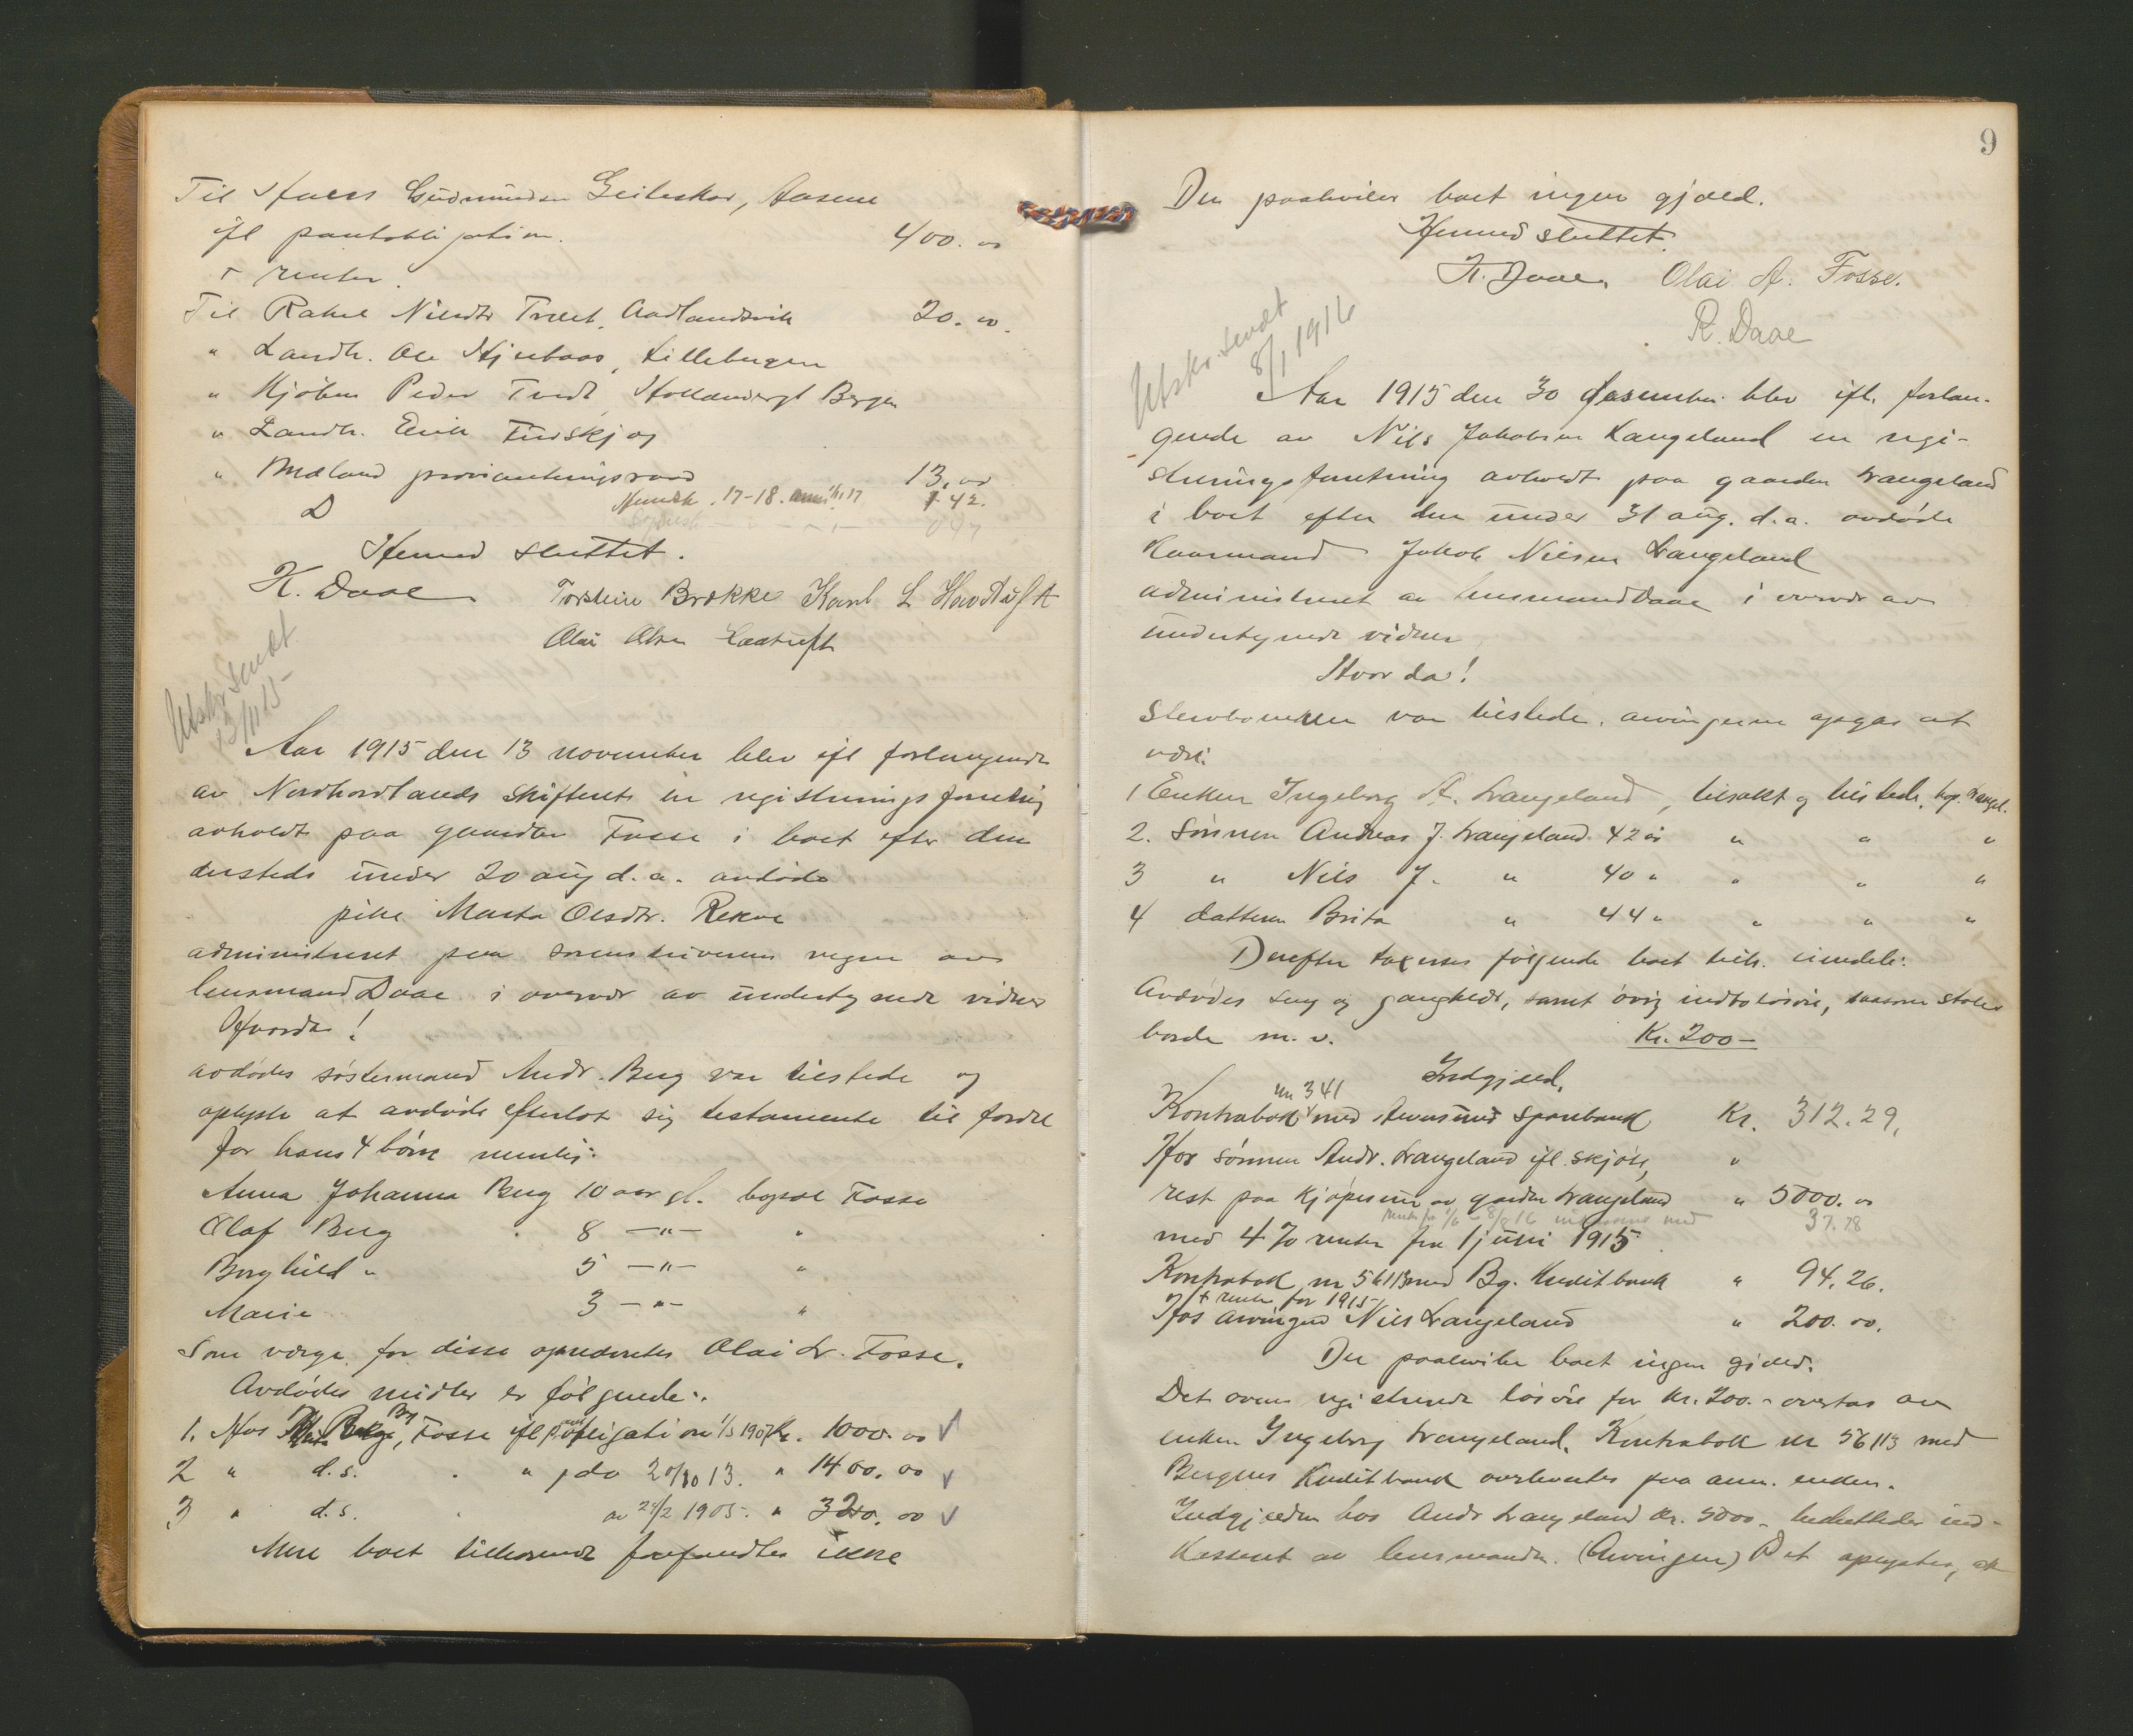 Til Gudmundsen Geiteskar, Aasene
ifl pantobligation. 400.00
+ renter.
Til Rakel Nilsdtr Tveit, Aadlandsvik 20.00.
" Landh. Ole Lillebergen
" Kjøbm Peder Tvedt, Hollændergt Bergen
" Landh. Erik
" Mæland provianteringsraad 13.00
17-18. 42.
Hermed sluttet.
K. Daae Torstein Brække Karl L
Olai Olsen
Utskr. sendt
13/11 15
Aar 1915 den 13 november blev ifl forlangende
av Nordhordlands skifteret en registreringsforretning
avholdt paa gaarden Fosse i boet efter den
dersteds under 20 aug d.a. avdøde
pike Marta Olsdtr. Rekve
administreret paa sorenskriverens vegne av
lensmand Daae i overvær av undertegnede vidner
Hvorda!
avdødes søstermand Andr. Berg var tilstede og
oplyste at avdøde efterlot sig testamente til fordel
for hans 4 børn nemlig:
Anna Johanna Berg 10 aar gl. bopæl Fosse
Olaf Berg 8 —"— "
Borghild " 5 —"— "
Marie 3 —"— "
Som værge for disse opnævntes Olai A. Fosse.
Avdødes midler er følgende:.
1. Hos Berg, Fosse ifl p obligation 1/3 1907 Kr. 1000.00
2 " d.s. " do 20/10 13. " 1400.00
3 " d.s. av 24/2 1905. " 320.00
Mere boet tilhørende forefandtes ikke
9
Der paahviler boet ingen gjæld.
Hermed sluttet.
K. Daae. Olai A. Fosse.
R. Daae
Utskr. sendt
8/1 1916
Aar 1915 den 30 desember blev ifl. forlan-
gende av Nils Jakobsen Langeland en regi-
streringsforretning avholdt paa gaarden Langeland
i boet efter den under 31 aug. d.a. avdøde
Kaarmand Jakob Nilsen Langeland
administreret av lensmand Daae i overvær av
undertegnede vidner
Hvor da!
Stervboenken var tilstede. arvingerne opgas at
være:
1 Enken Ingeborg A. Langeland, tilsakt og tilstede, bop. Langel.
2. Sønnen Andreas J. Langeland 42 år " " "
3 " Nils J. " 40 " " " "
4 datteren Brita " 44 " " " "
Derefter taxertes følgende boet tilh. eiendele:
Avdødes seng og gangklær, samt øvrig indboløsøre, saasom stoler
borde m.v. Kr. 200-
Indgjæld.
nr 341
Kontrabok med sparebank Kr. 312.29,
Hos sønnen Andr. Langeland ifl. skjøte, "
rest paa kjøpesum av garden Langeland " 5000.00
37.78
med 4 % renter fra 1 juni 1915
Kontrabok nr 56113 med Bg. Kreditbank " 94.26.
+ renter for 1915
Hos arvingen Nils Langeland " 200.00.
Der paahviler boet ingen gjæld.
Det ovenn registrerede løsøre for kr. 200.- overtas av
enken Ingeborg Langeland. Kontrabok nr 56113 med
Bergens Kreditbank overleveres paa ann. enken.
Indgjælden hos Andr Langeland kr. 5000 - besluttedes ind-
kasseret av lensmanden. (Arvingen) Det oplystes, at